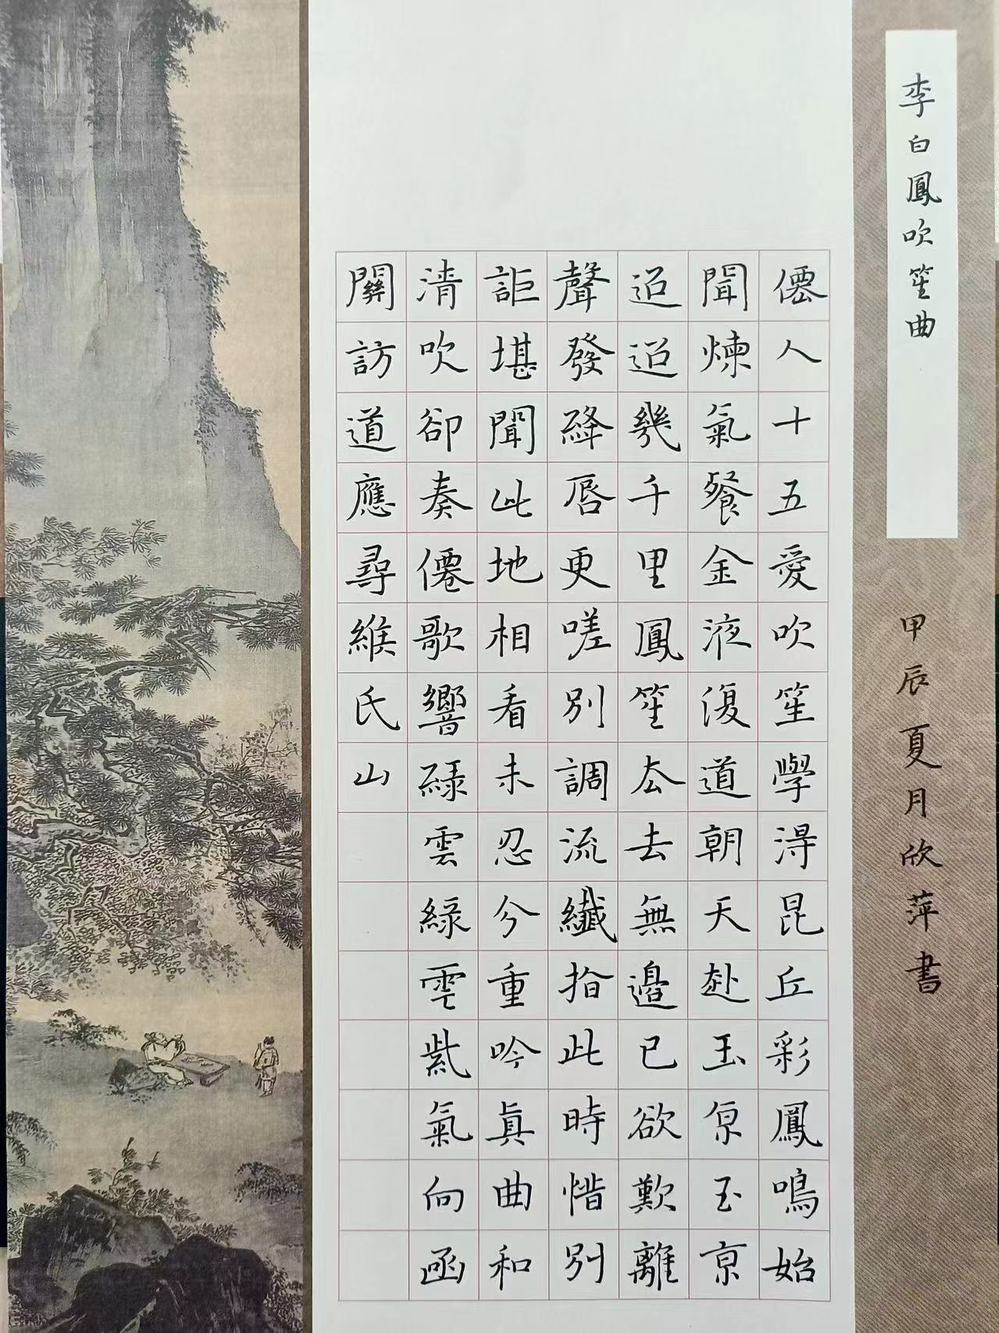 李白鳳吹笙曲
甲辰夏月欣萍書
僊人十五愛吹笙學淂昆丘彩鳳鳴始
聞煉氣餐金液復道朝天赴玉京玉京
迢迢幾千里鳳笙去去無邊已欲歎離
聲發絳唇更嗟別調流纖指此時惜別
詎堪聞此地相看未忍分重吟真曲和
清吹卻奏僊歌響綠雲綠雲紫氣向函
關訪道應尋緱氏山